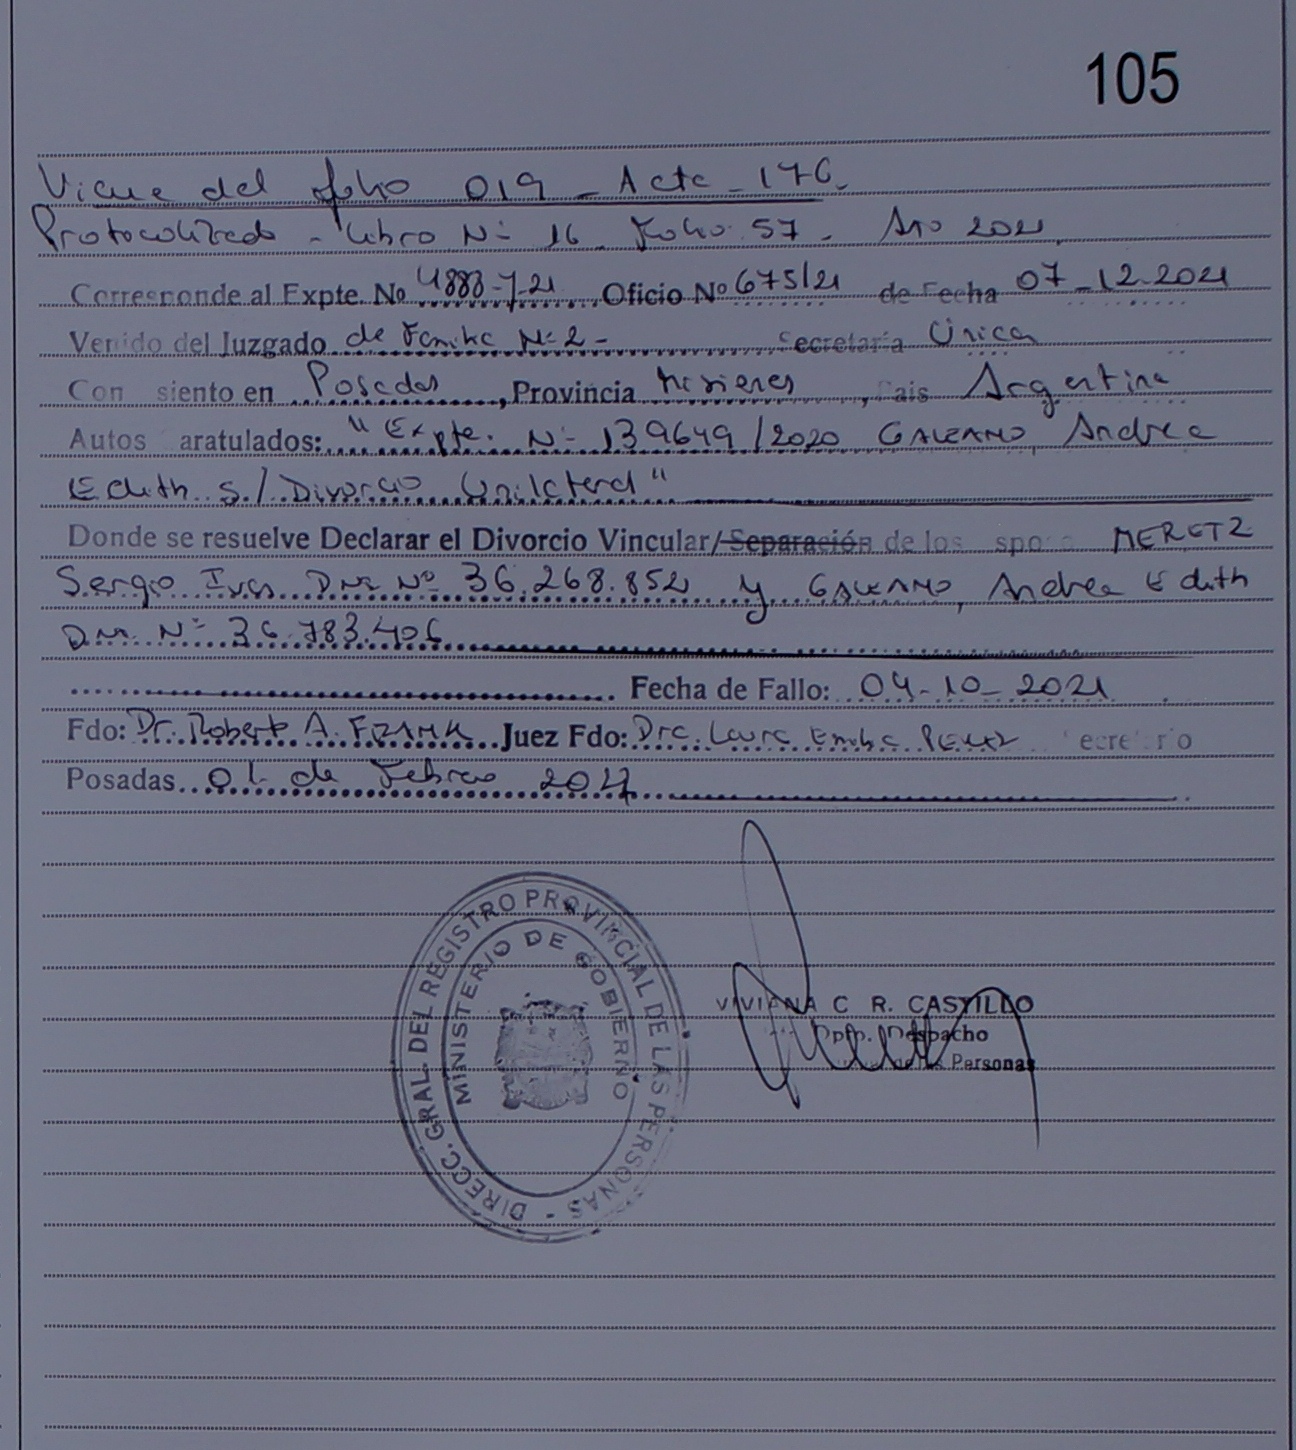 105
Viene del folio 019 - Acta - 176.
Protocolizado - Libro Nº 16 - Folio 57 - Año 2021
Corresponde al Expte. No 4883-7-21 Oficio Nº 675/21 de Fecha 07-12-2021
Venido del Juzgado de Familia Nº 2 - Secretaría Única
Con siento en Posadas, Provincia Misiones, Pais Argentina
Autos aratulados: "Expte. Nº 139649/2020 GALEANO Andrea
Edith S/ Divorcio Unilateral"
Donde se resuelve Declarar el Divorcio Vincular/Separación de los spo MERETZ
Sergio Ivan DNI Nº 36.268.852 y GALEANO, Andrea Edith
DNI Nº 36.783.406
Fecha de Fallo: 04-10-2021
Fdo: Dr. Robert A. FRANK Juez Fdo: Dra. Laura Emilia ecretario
Posadas 01 de Febrero
DIRECC. GRAL. DEL REGISTRO PROVINCIAL DE LAS PERSONAS -
MINISTERIO DE GOBIERNO
VIVIANA C R. CASTILLO
Dpto. Despacho
de las Personas